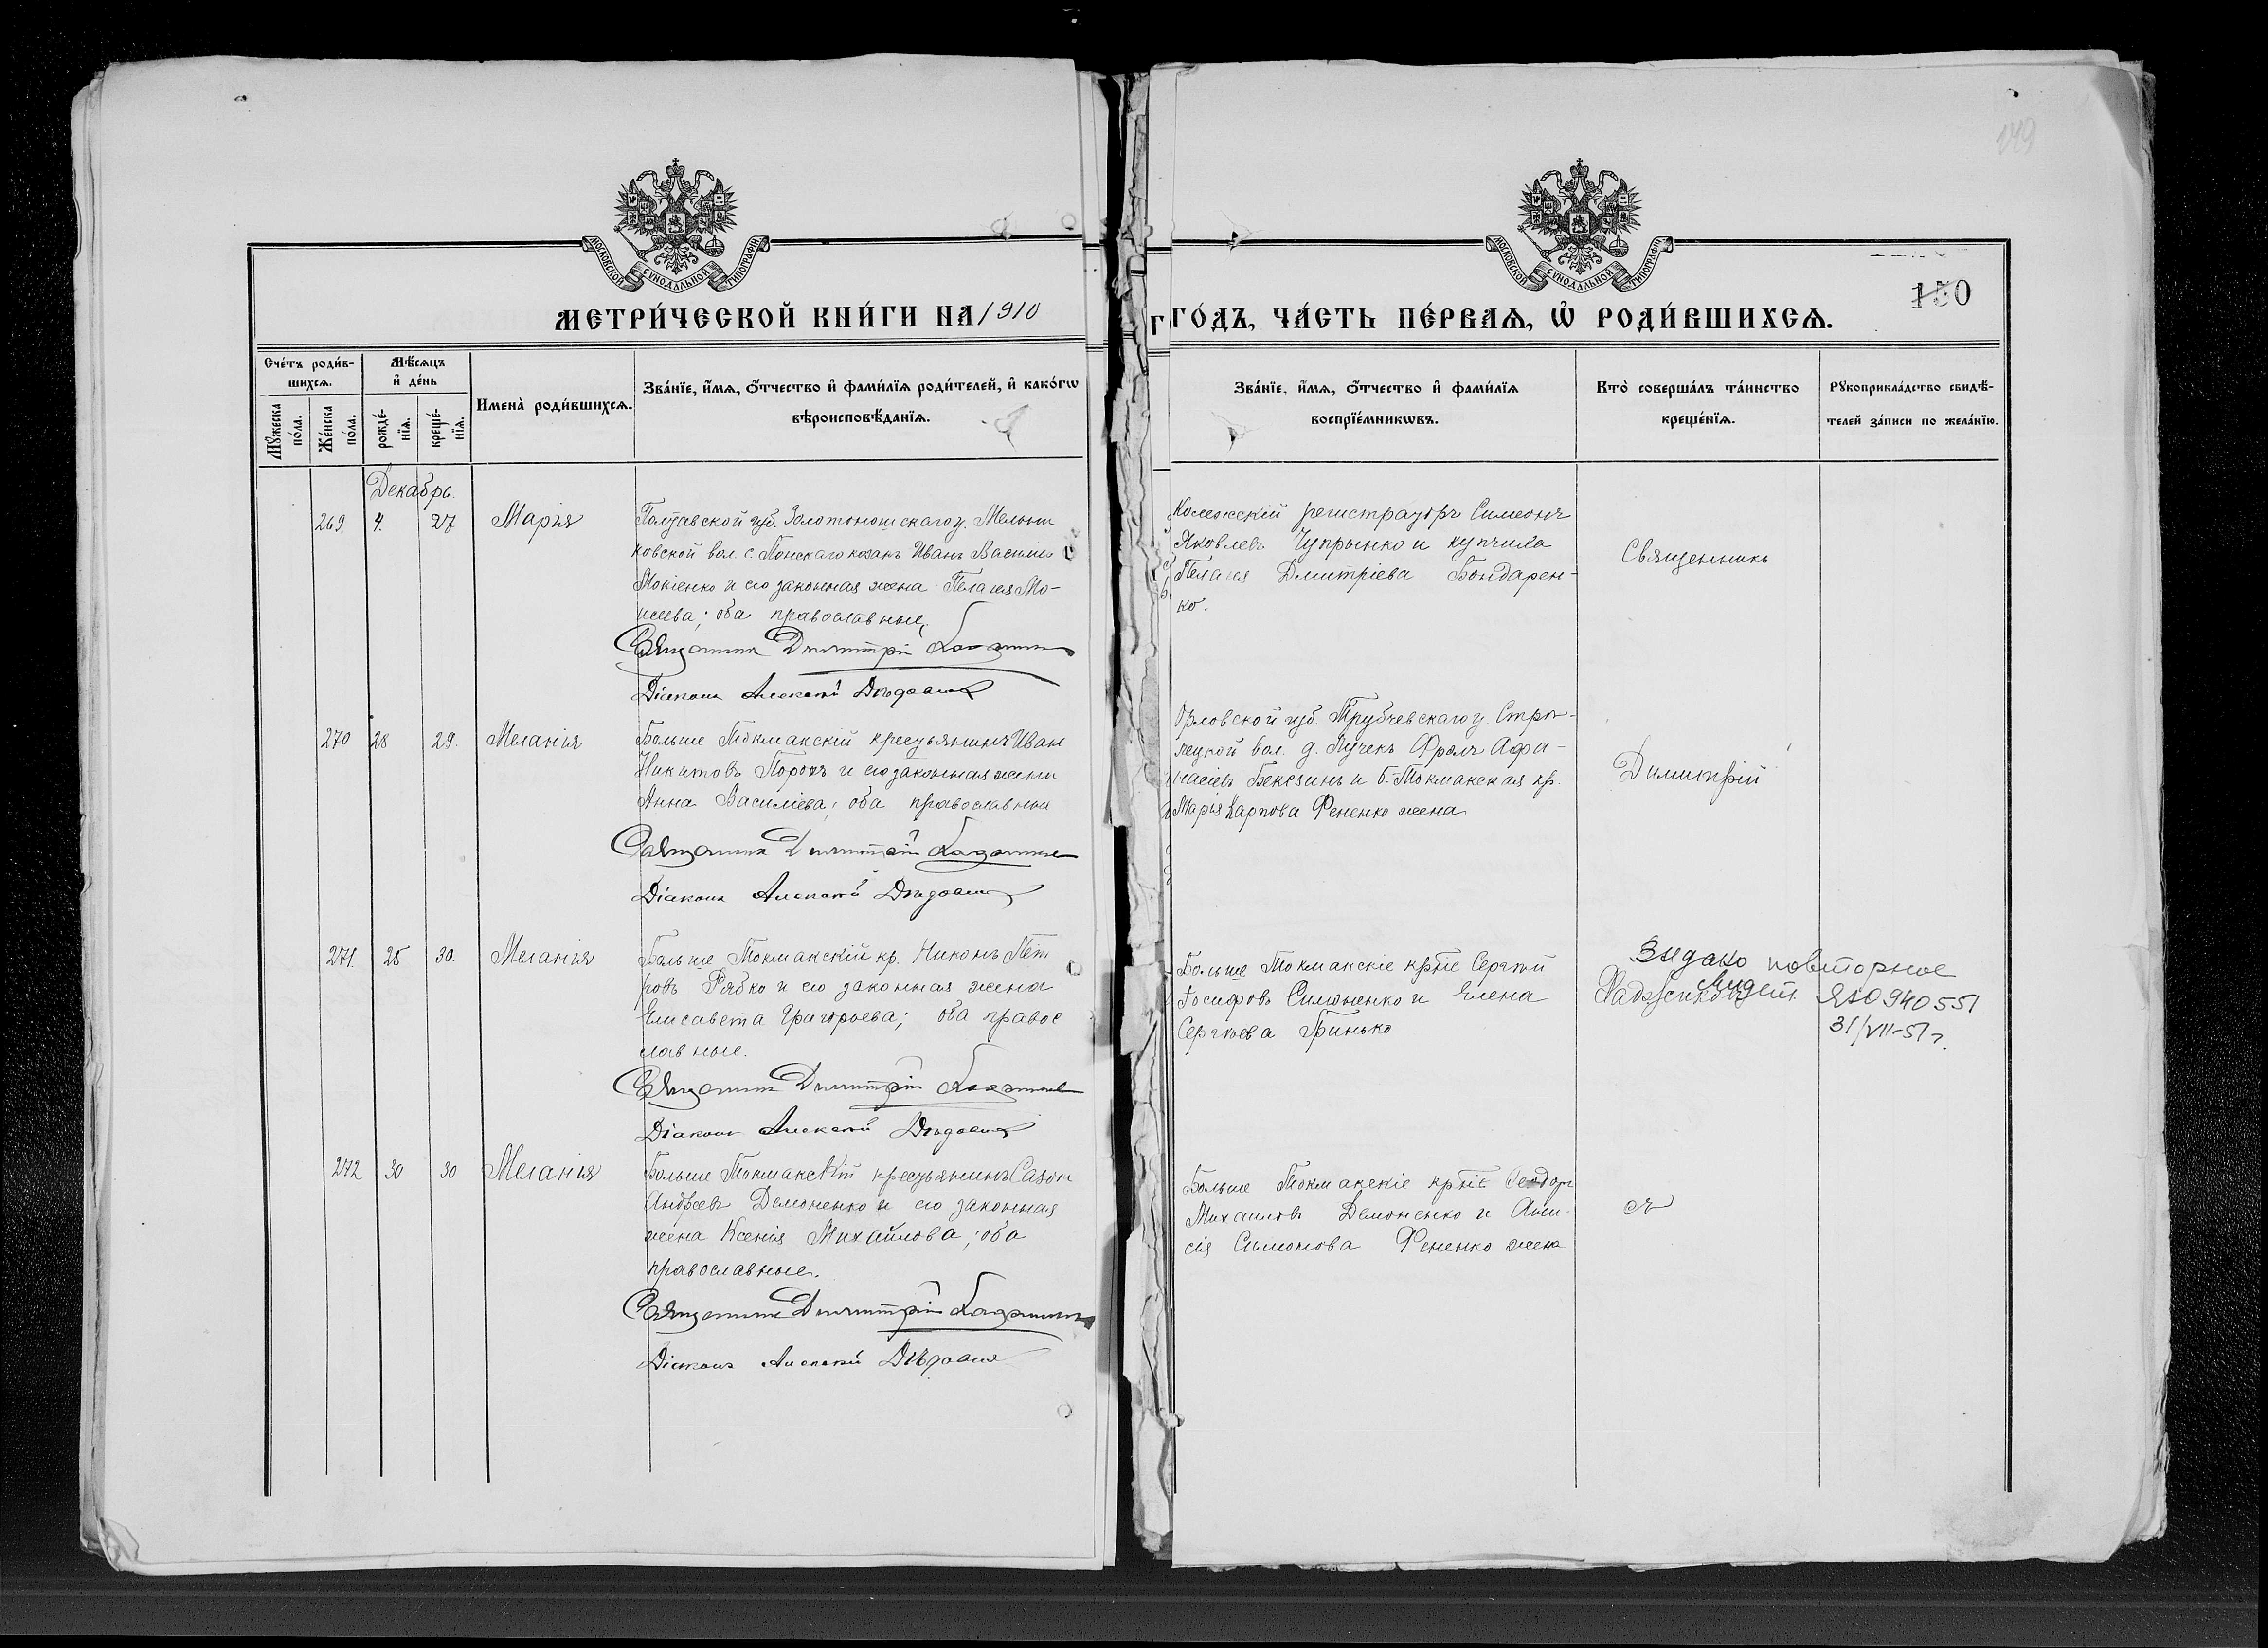 149
МОСКОВСКОЙ СУНОДАЛЬНОЙ ТИПОГРАФІИ
МОСКОВСКОЙ СУНОДАЛЬНОЙ ТИПОГРАФІИ
150
МЕТРИ́ЧЕСКОЙ КНИ́ГИ НА 1910
ГО́ДЪ, ЧА́СТЬ ПЕ́РВАЯ, Ѡ҆ РОДИ́ВШИХСЯ.
Сче́тъ роди́в-
шихся.
Мѣ́сяцъ
и҆ де́нь
Мꙋ́жеска
по́ла.
Же́нска
по́ла.
рожде́-
нїя.
креще́-
нїя.
Имена̀ роди́вшихся.
Зва́нїе, и҆́мя, ѻ҆́тчество и҆ фами́лїя роди́телей, и҆ како́гѡ
вѣроисповѣ́данїя.
Зва́нїе, и҆́мя, ѻ҆́тчество и҆ фами́лїя
воспрїе́мникѡвъ.
Кто̀ соверша́лъ та́инство
креще́нїя.
Рꙋкоприкла́дство свидѣ́-
телей за́писи по жела́нїю.
Декабрь.
269 4. 27 Марія
Полтавской губ. Золотоношскаго у. Мельни
ковской вол. с. казакъ Иванъ Васильев
Мокіенко и его законная жена Пелагея Мо-
исеева; оба православные.
Священник Димитрій
Діаконъ Алексѣй
Коллежскій регистраторъ Симеонъ
Яковлевъ Чупрынко и купчиха
Пелагея Дмитріева Бондарен-
ко.
Священникъ
270 28 29. Меланія
Больше Токмакскій крестьянинъ Иван
Никитовъ Порохъ и его законная жена
Анна Василіева; оба православные
Священник Димитрій
Діаконъ Алексѣй
Орловской губ. Трубчевскаго у.
вол. д. Фролъ Афа-
насіевъ и Б.-Токмакская кр.
Марія Карпова Фененко жена
Димитрій
271. 25 30. Меланія
Больше Токмакскій кр. Никонъ Пет
ровъ Рябко и его законная жена
Елисавета Григорьева; оба правос
лавные.
Священник Димитрій
Діаконъ Алексѣй
Больше Токмакскіе крⷭ҇тне Сергѣй
Іосифовъ Симоненко и Елена
Сергѣева Гринько
Видано повторное
ЯЮ 940551
31/VII-51 г.
272 30 30 Меланія
Больше Токмакскій крестьянинъ Сазон
Андреевъ Демоненко и его законная
жена Ксенія Михайлова; оба
православные.
Священник Димитрій
Діаконъ Алексѣй
Больше Токмакскіе крⷭ҇тне Ѳеодоръ
Михаиловъ Демоненко и Ани-
сія Симонова Фененко жена